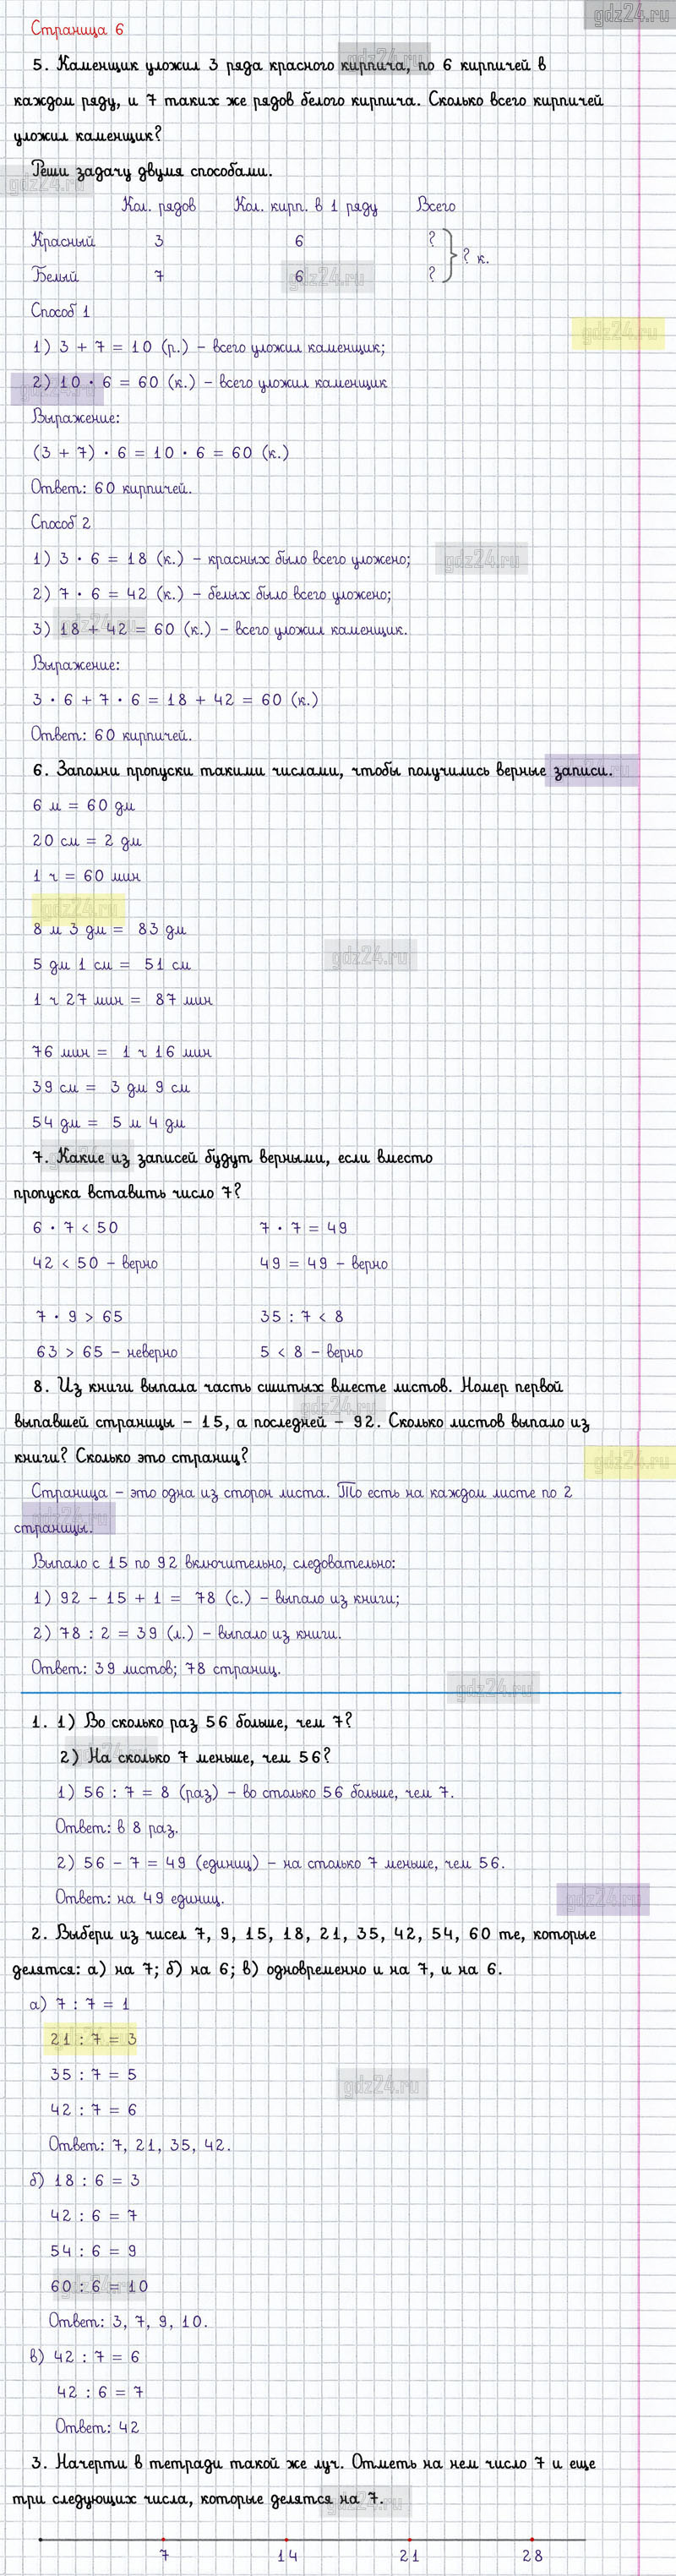 gdz24.ru
Страница 6
5. Каменщик уложил 3 ряда красного кирпича, по 6 кирпичей в
каждом ряду, и 7 таких же рядов белого кирпича. Сколько всего кирпичей
уложил каменщик?
Реши задачу двумя способами.
Кол. рядов Кол. кирп. в 1 ряду Всего
Красный 3 6 ?
? к.
Белый 7 6 ?
Способ 1
1) 3 + 7 = 10 (р.) – всего уложил каменщик;
2) 10 · 6 = 60 (к.) – всего уложил каменщик
Выражение:
(3 + 7) · 6 = 10 · 6 = 60 (к.)
Ответ: 60 кирпичей.
Способ 2
1) 3 · 6 = 18 (к.) – красных было всего уложено;
2) 7 · 6 = 42 (к.) – белых было всего уложено;
3) 18 + 42 = 60 (к.) – всего уложил каменщик.
Выражение:
3 · 6 + 7 · 6 = 18 + 42 = 60 (к.)
Ответ: 60 кирпичей.
6. Заполни пропуски такими числами, чтобы получились верные записи.
6 м = 60 дм
20 см = 2 дм
1 ч = 60 мин
8 м 3 дм = 83 дм
5 дм 1 см = 51 см
1 ч 27 мин = 87 мин
76 мин = 1 ч 16 мин
39 см = 3 дм 9 см
54 дм = 5 м 4 дм
7. Какие из записей будут верными, если вместо
пропуска вставить число 7?
6 · 7 < 50 7 · 7 = 49
42 < 50 – верно 49 = 49 – верно
7 · 9 > 65 35 : 7 < 8
63 > 65 – неверно 5 < 8 – верно
8. Из книги выпала часть сшитых вместе листов. Номер первой
выпавшей страницы – 15, а последней – 92. Сколько листов выпало из
книги? Сколько это страниц?
Страница – это одна из сторон листа. То есть на каждом листе по 2
страницы.
Выпало с 15 по 92 включительно, следовательно:
1) 92 – 15 + 1 = 78 (с.) – выпало из книги;
2) 78 : 2 = 39 (л.) – выпало из книги.
Ответ: 39 листов; 78 страниц.
1. 1) Во сколько раз 56 больше, чем 7?
2) На сколько 7 меньше, чем 56?
1) 56 : 7 = 8 (раз) – во столько 56 больше, чем 7.
Ответ: в 8 раз.
2) 56 – 7 = 49 (единиц) – на столько 7 меньше, чем 56.
Ответ: на 49 единиц.
2. Выбери из чисел 7, 9, 15, 18, 21, 35, 42, 54, 60 те, которые
делятся: а) на 7; б) на 6; в) одновременно и на 7, и на 6.
а) 7 : 7 = 1
21 : 7 = 3
35 : 7 = 5
42 : 7 = 6
Ответ: 7, 21, 35, 42.
б) 18 : 6 = 3
42 : 6 = 7
54 : 6 = 9
60 : 6 = 10
Ответ: 3, 7, 9, 10.
в) 42 : 7 = 6
42 : 6 = 7
Ответ: 42
3. Начерти в тетради такой же луч. Отметь на нем число 7 и еще
три следующих числа, которые делятся на 7.
7 14 21 28